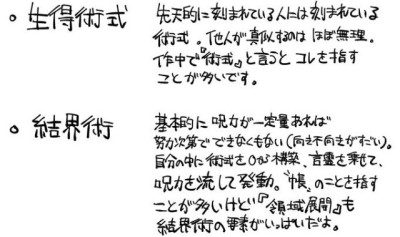 ○ 生得術式
先天的に刻まれている人には刻まれている
術式。他人が真似するのはほぼ無理。
作中で『術式』と言うとコレを指す
ことが多いです。
○ 結界術
基本的に呪力が一定量あれば
努力次第でできなくもない(向き不向きがすごい)。
自分の中に術式を0から構築、言霊を乗せて、
呪力を流して発動。〝帳〟のことを指す
ことが多いけど『領域展開』も
結界術の要素がいっぱいだよ。